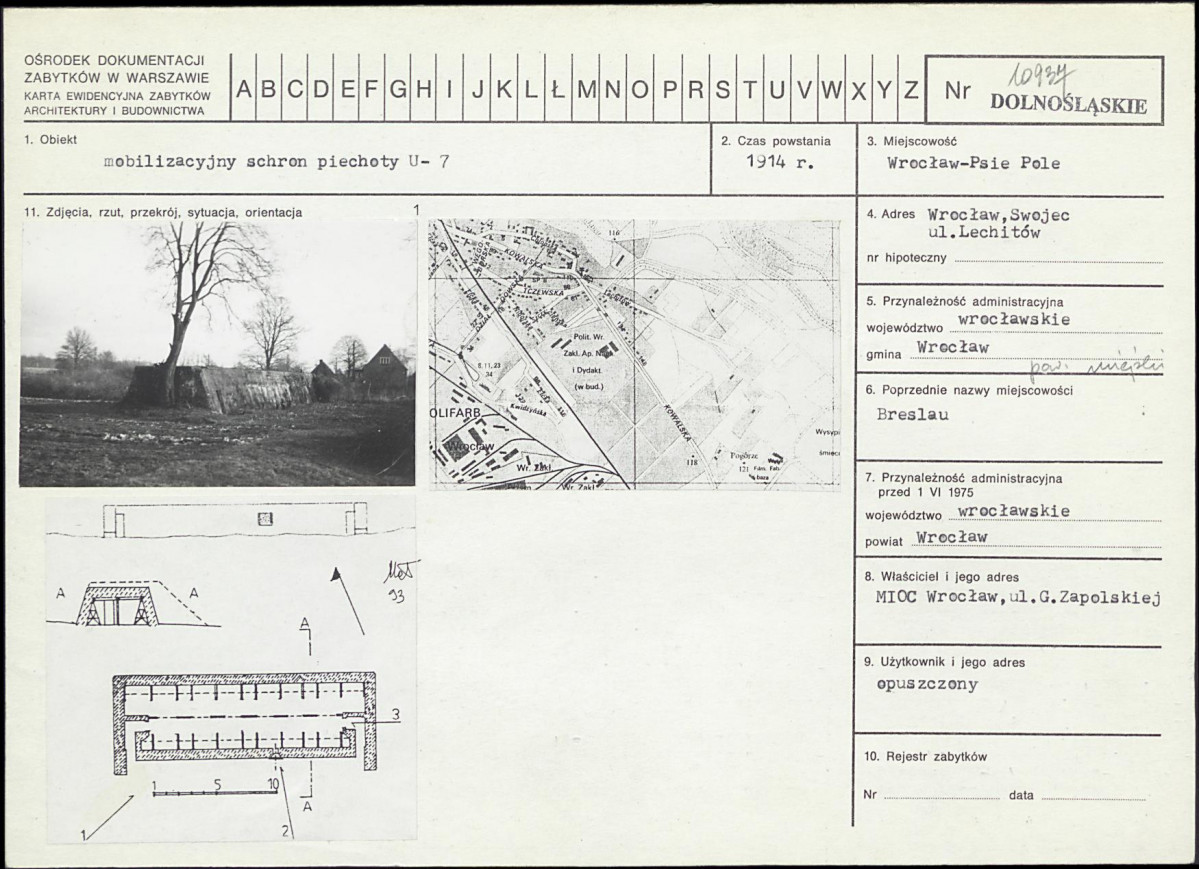 OŚRODEK DOKUMENTACJI
ZABYTKÓW W WARSZAWIE
KARTA EWIDENCYJNA ZABYTKÓW
ARCHITEKTURY I BUDOWNICTWA
A B C D E F G H I J K L Ł M N O P R S T U V W X Y Z
Nr 10937
DOLNOŚLĄSKIE
1. Obiekt
mobilizacyjny schron piechoty U- 7
2. Czas powstania
1914 r.
3. Miejscowość
Wrocław-Psie Pole
11. Zdjęcia, rzut, przekrój, sytuacja, orientacja
1
4. Adres Wrocław,Swojec
ul.Lechitów
nr hipoteczny
5. Przynależność administracyjna
województwo wrocławskie
gmina Wrocław
pow. miejski
6. Poprzednie nazwy miejscowości
Breslau
7. Przynależność administracyjna
przed 1 VI 1975
województwo wrocławskie
powiat Wrocław
8. Właściciel i jego adres
MIOC Wrocław,ul.G.Zapolskiej
9. Użytkownik i jego adres
opuszczony
10. Rejestr zabytków
Nr data
116
KOWALSKA
TCZEWSKA
Polit. Wr.
Zakł. Ap. Nauk
i Dydakt.
(w bud.)
8, 11, 23
34
Kwidzyńska
OLIFARB
Wrocław
Wr. Zakł.
Wr. Zakł.
KOWALSKA
118
Pogórze
121
baza
Wysypi
śmieci
A A
93
A
3
1 5 10
A
1
2